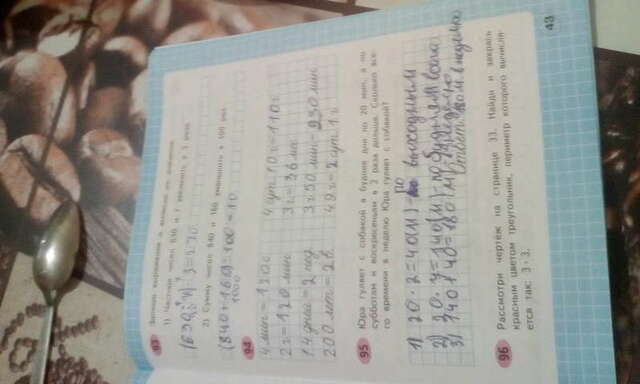 93 Запиши выражения и вычисли их значения.
1) Частное чисел 630 и 7 уменьшить в 3 раза.
(630:7):3=270
2) Сумму чисел 840 и 160 уменьшить в 100 раз.
(840+160):100=10
1000
94
4 мин = 120 с 4 сут. 10 ч = 110 ч
2 ч = 120 мин 3 г = 36 м
14 дней = 2 нед 3 ч 50 мин = 230 мин
200 лет = 2 в. 49 ч = 2 сут. 1 ч
95 Юра гуляет с собакой в будние дни по 20 мин, а по субботам и воскресеньям в 2 раза дольше. Сколько все-
го времени в неделю Юра гуляет с собакой?
1) 20·2=40(м) по выходным
2) 20·7=140(м) по будням
3) 140+40=180 м
Ответ: в неделю
96 Рассмотри чертёж на странице 33. Найди и закрась
красным цветом треугольник, периметр которого вычисля-
ется так: 3·3.
43